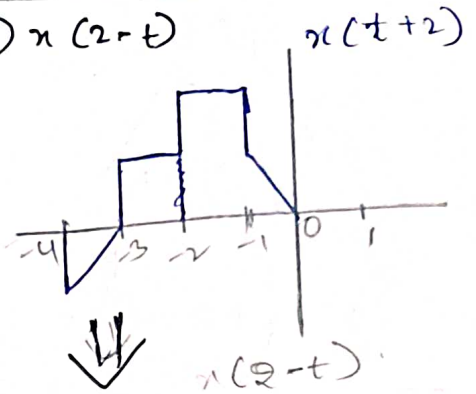 ) x (2-t)
x(t+2)
-4 -3 -2 -1 0 1
x(2-t)